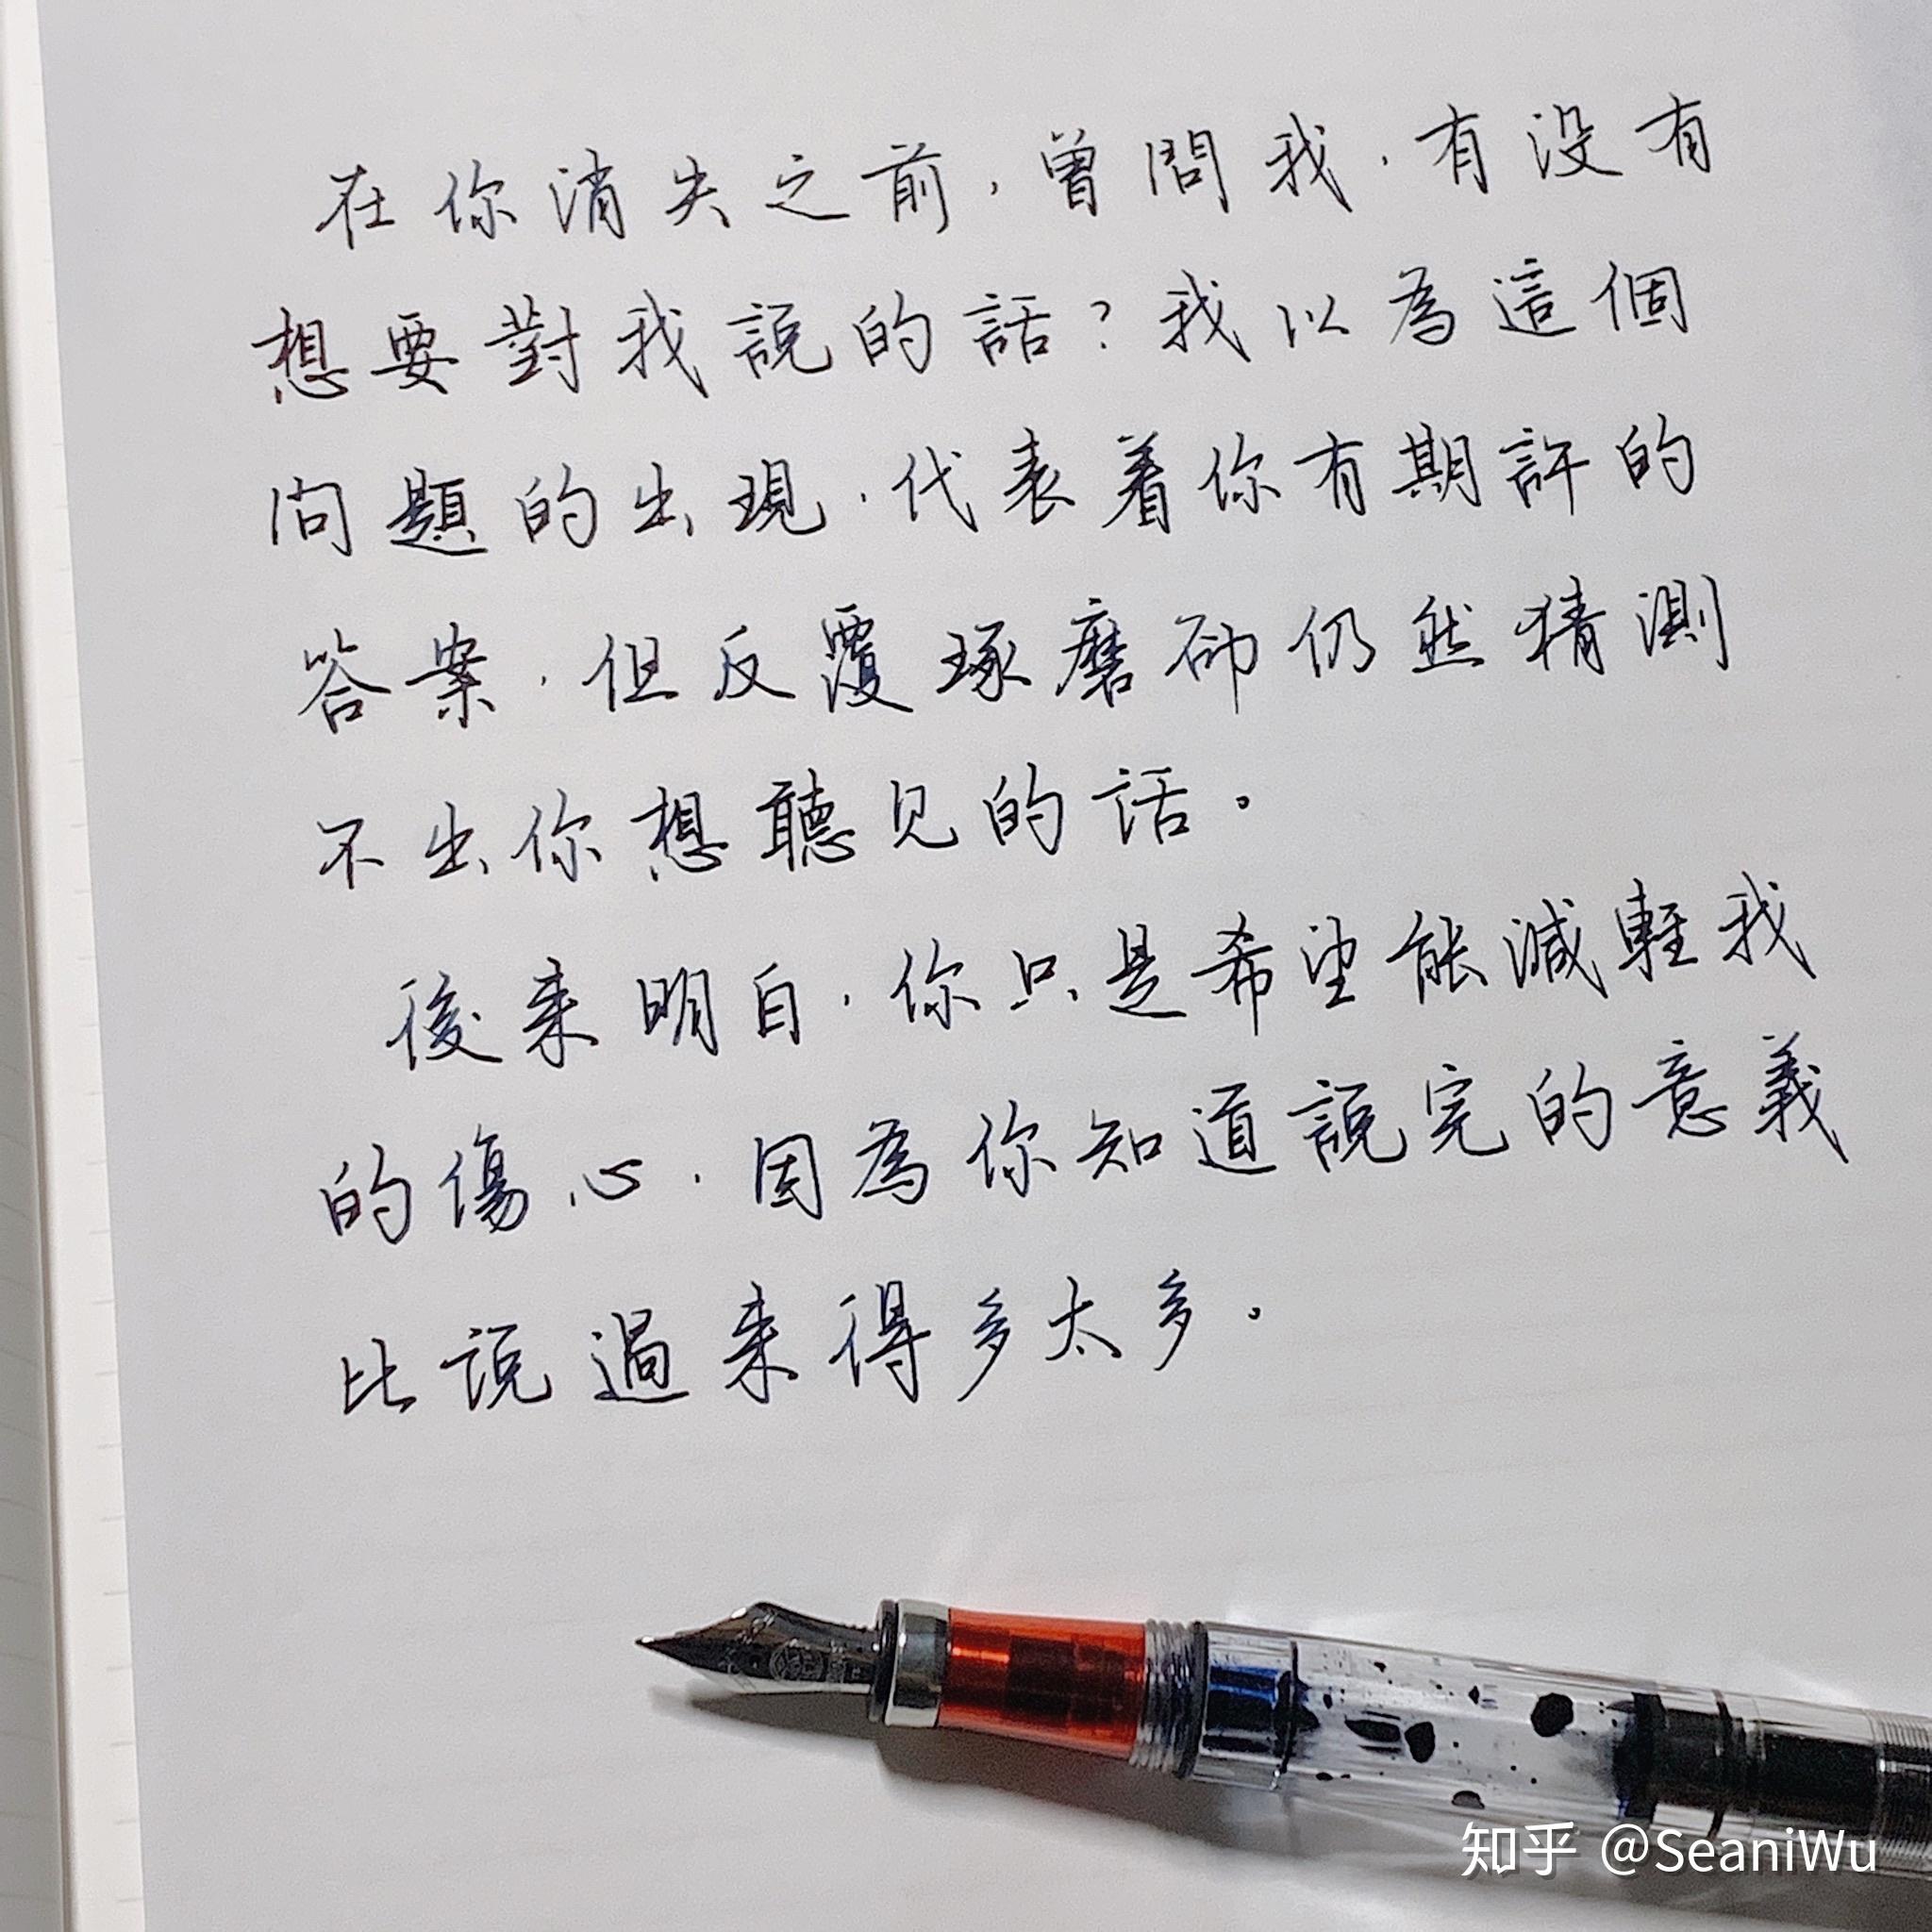 在你消失之前，曾問我，有没有
想要對我說的話？我以為這個
問題的出現，代表着你有期許的
答案，但反覆琢磨卻仍然猜測
不出你想聽見的話。
後来明白，你只是希望能減輕我
的傷心，因為你知道說完的意義
比說過来得多太多。
知乎 @SeaniWu